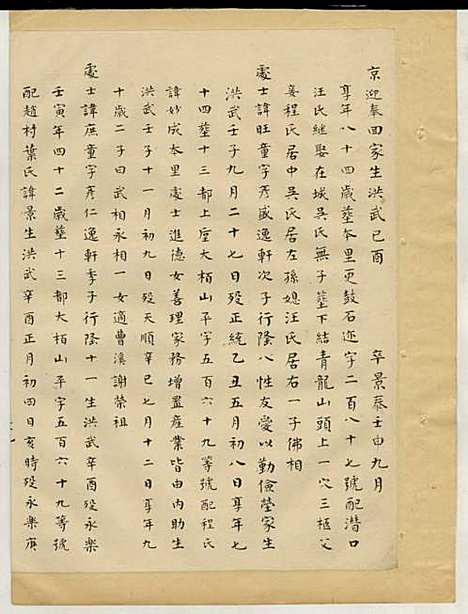 京迎奉回家生洪武己酉　卒景泰壬申九月
享年八十四歲塟本里更鼓石迹字二百八十七號配潜口
汪氏継娶在城吳氏無子塟下結青龍山頭上一穴三柩父
妾程氏居中吳氏居左孫媳汪氏居右一子佛相
處士諱旺童字彥盛逸軒次子行隆八性友愛以勤儉瑩家生
洪武壬子九月二十七日殁正統乙丑五月初八日享年七
十四塟十三都上庢大栢山平字五百六十九等號配程氏
諱妙成本里處士進德女善理家務增置産業皆由内助生
洪武壬子十一月初九日殁天順辛巳七月十二日享年九
十歲二子曰武相永相一女適曹溪謝榮祖
處士諱庶童字彥仁逸軒季子行隆十一生洪武辛酉殁永樂
壬寅年四十二歲塟十三都大栢山平字五百六十九等號
配趙村葉氏諱景生洪武辛酉正月初四日亥時殁永樂庚